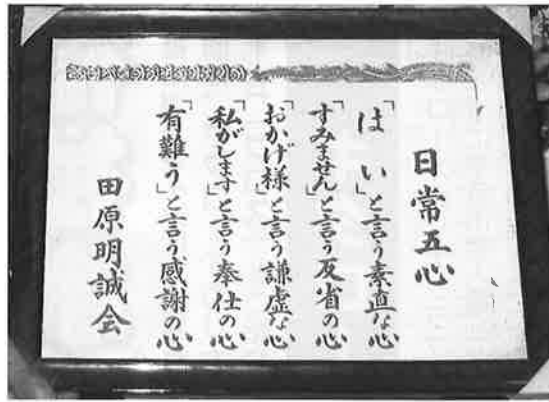 日常五心
「はい」と言う素直な心
「すみません」と言う反省の心
「おかげ様」と言う謙虚な心
「私がします」と言う奉仕の心
「有難う」と言う感謝の心
田原明誠会